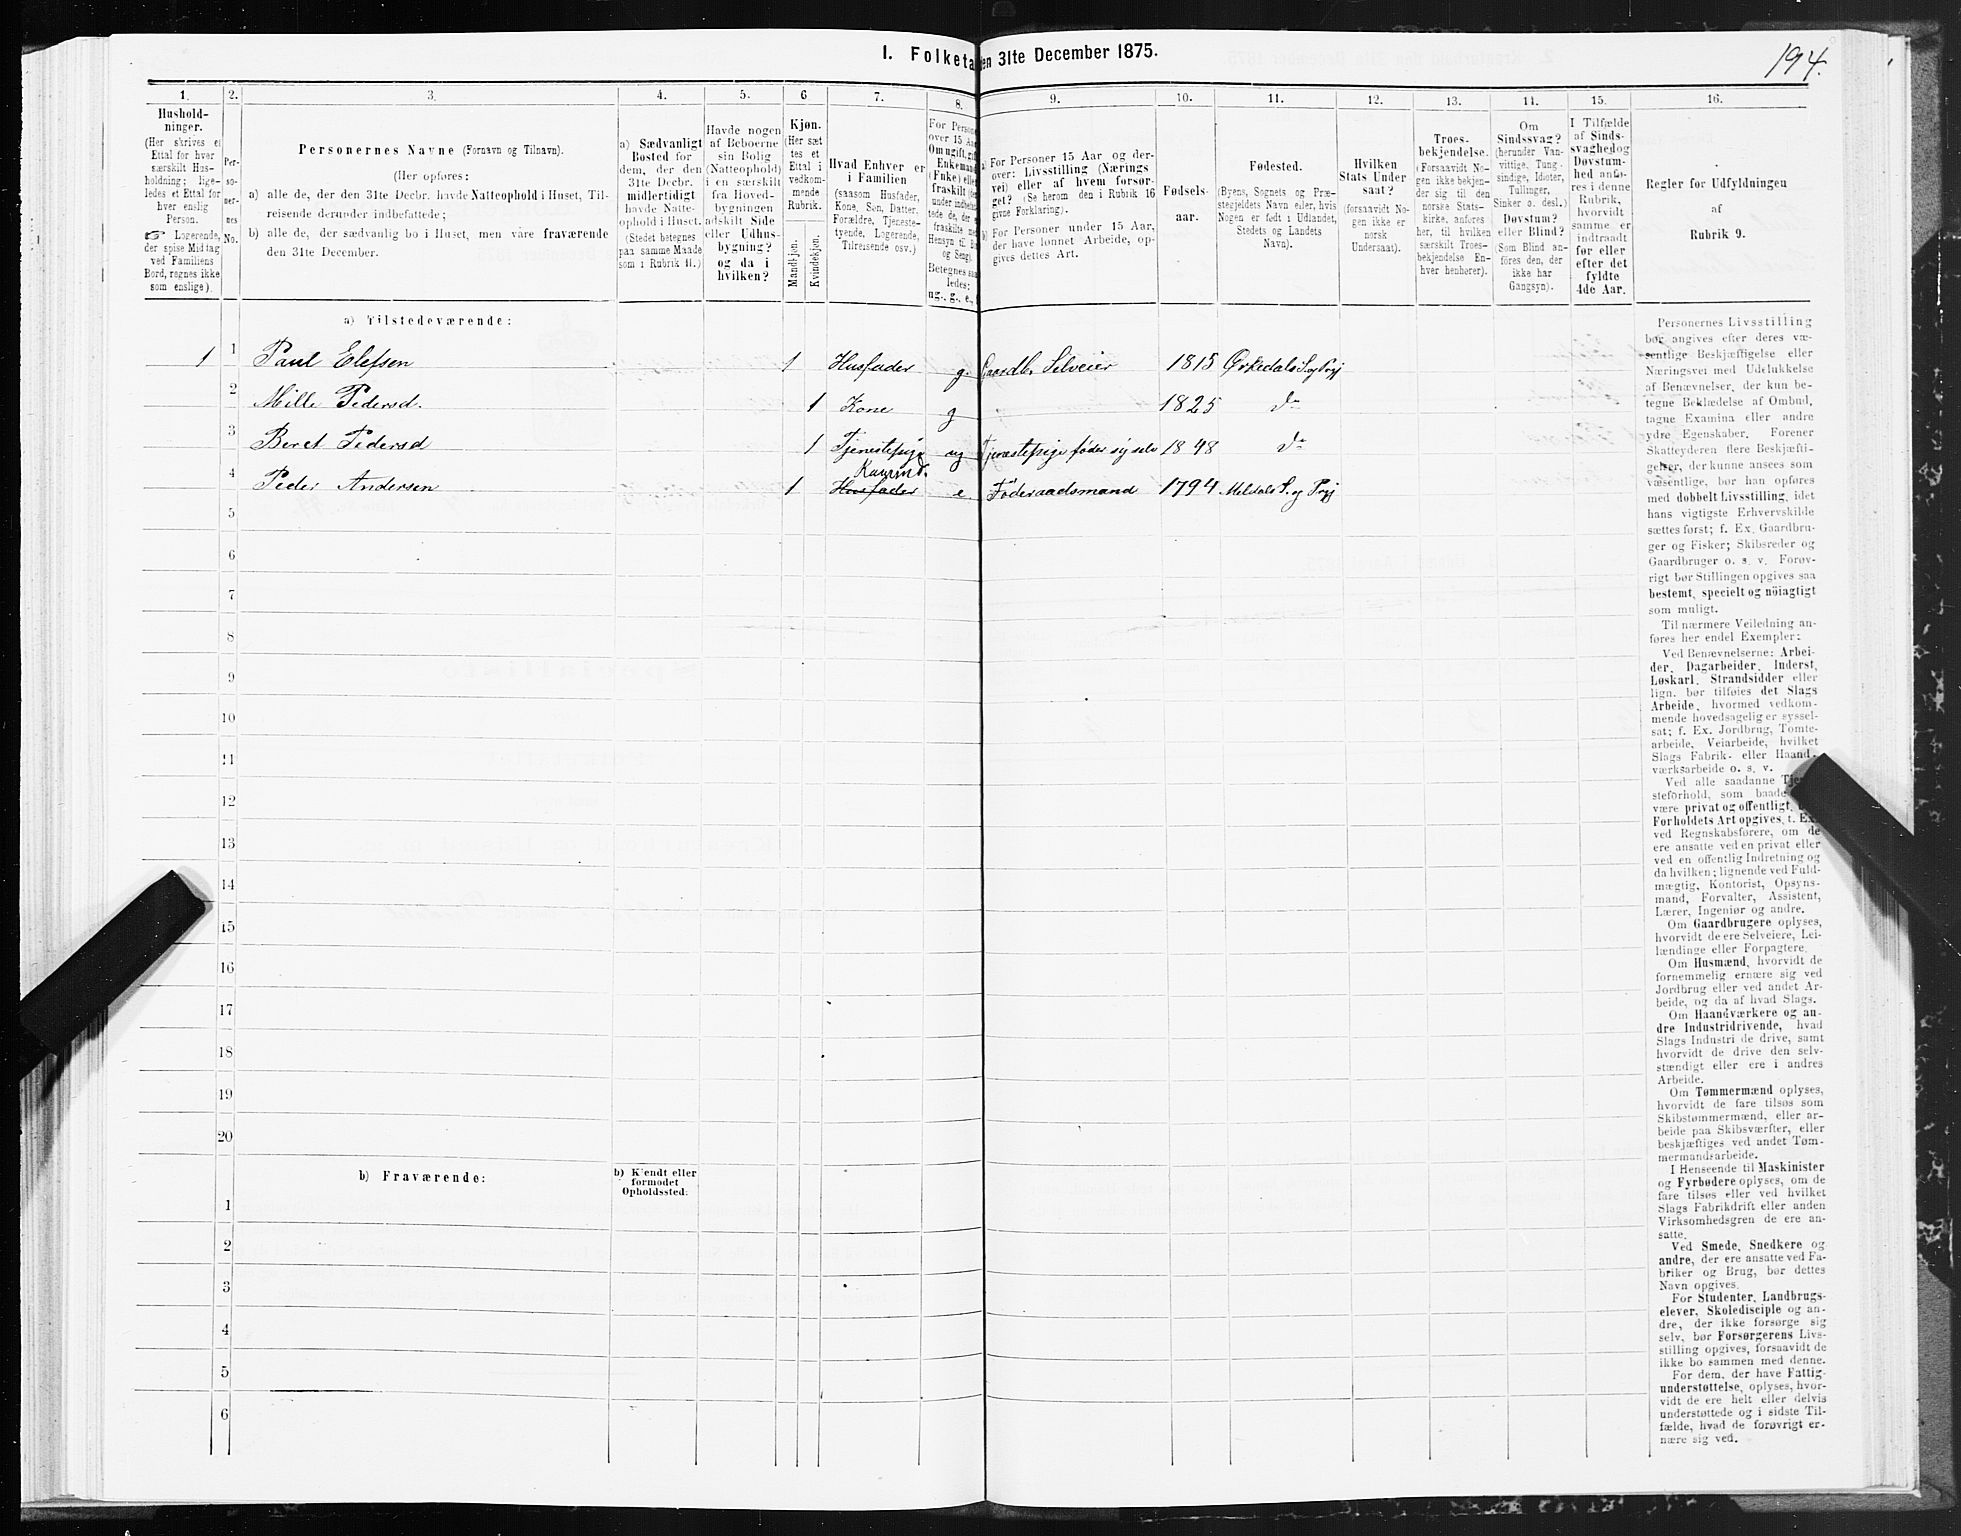 194.
I. Folketa en 31te December 1875.
1. 2. 3. 4. 5. 6 7. 8. 9. 10. 11. 12. 13. 14. 15. 16.
Hushold-
ninger.
(Her skrives et
Ettal for hver
særskilt Hus-
holdning; lige-
ledes et Ettal for
hver enslig
Person.
☞ Logerende,
der spise Middag
ved Familiens
Bord, regnes ikke
som enslige).
Per-
so-
ner-
nes
No.
Personernes Navne (Fornavn og Tilnavn).
(Her opføres:
a) alle de, der den 31te Decbr. havde Natteophold i Huset, Til-
reisende derunder indbefattede;
b) alle de, der sædvanlig bo i Huset, men våre fraværende
den 31te December.
a) Sædvanligt
Bosted for
dem, der den
31te Decbr.
midlertidigt
havde Natte-
ophold i Huset.
(Stedet betegnes
paa samme Maade
som i Rubrik 11.)
Havde nogen
af Beboerne
sin Bolig
(Natteophold)
i en særskilt
fra Hoved-
bygningen
adskilt Side
eller Udhus-
bygning?
og da i
hvilken?
Kjøn.
(Her sæt
tes et
Ettal i
vedkom-
mende
Rubrik.
Mandkjøn.
Kvindekjøn.
Hvad Enhver er
i Familien
(saasom Husfader,
Kone, Søn, Datter,
Forældre, Tjeneste-
tyende, Logerende,
Tilreisende osv.)
For Persone
over 15 Aa
Om ugift, gif
Enkemand
(Enke) el
fraskilt
under indbef
tede de, der
fraskilte
Hensyn til B
og Seng).
Betegnes saa
ledes:
ug., g., e.,
a) For Personer 15 Aar og der-
over: Livsstilling (Nærings
vei) eller af hvem forsør-
get? (Se herom den i Rubrik 16
givne Forklaring).
b) For Personer under 15 Aar,
der have lønnet Arbeide, op-
gives dettes Art.
Fødsels-
aar.
Fødested.
(Byens, Sognets og Præ-
stegjeldets Navn eller, hvis
Nogen er født i Udlandet,
Stedets og Landets
Navn).
Hvilken
Stats Under
saat?
(forsaavidt No-
gen ikke er
norsk
Undersaat).
Troes-
bekjendelse.
(Forsaavidt No-
gen ikke bekjen-
der sig til den
norske Stats-
kirke, anføres
her, til hvilken
særskilt Troes-
bekjendelse En-
hver henhører).
Om
Sindssvag?
(herunder Van-
vittige, Tung-
sindige, Idioter,
Tullinger,
Sinker o. desl.)
Døvstum?
eller Blind?
(Som Blind an-
føres den, der
ikke har
Gangsyn).
I Tilfælde
af Sinds-
svaghed og
Døvstum-
hed anfø-
res i denne
Rubrik,
hvorvidt
samme er
indtraadt
før eller
efter det
fyldte
4de Aar.
Regler for Udfyldningen
af
Rubrik 9.
a) Tilstedeværende:
1 1 Paul Elefsen 1 Husfader g. Gaardb. Selveier 1815 Ørkedals S. og Prgj
2 Mille Pedersd. 1 Kone g 1825 do
3 Beret Pedersd 1 Tjenestepige ug Tjenestepige føder sig selv 1848 do
4 Peder Andersen 1 Husfader e Føderaadsmand 1794 Meldals S. og Prgj
5
6
7
8
9
10
11
12
13
14
15
16
17
18
19
20
b) Fraværende:
b) Kjendt eller
formodet
Opholdssted:
1
2
3
4
5
6
Personernes Livsstilling
bør angives efter deres væ-
sentlige Beskjæftigelse eller
Næringsvei med Udelukkelse
af Benævnelser, der kun be-
tegne Beklædelse af Ombud,
tagne Examina eller andre
ydre Egenskaber. Forener
Skatteyderen flere Beskjæfti-
gelser, der kunne ansees som
væsentlige, bør han opføres
med dobbelt Livsstilling, idet
hans vigtigste Erhvervskilde
sættes først; f. Ex. Gaardbru-
ger og Fisker; Skibsreder og
Gaardbruger o. s. v. Forøv-
rigt bør Stillingen opgives saa
bestemt, specielt og nöiagtigt
som muligt.
Til nærmere Veiledning an-
føres her endel Exempler:
Ved Benævnelserne: Arbei-
der, Dagarbeider, Inderst,
Løskarl, Strandsidder eller
lign. bør tilføies det Slags
Arbeide, hvormed vedkom-
mende hovedsagelig er syssel-
sat; f. Ex. Jordbrug, Tomte-
arbeide, Veiarbeide, hvilket
Slags Fabrik- eller Haand-
værksarbeide o. s. v.
Ved alle saadanne Tjene-
steforhold, som baade
være privat og offentligt,
Forholdets Art opgives, f. Ex.
ved Regnskabsførere, om de
ere ansatte ved en privat eller
ved en offentlig Indretning og
da hvilken; lignende ved Fuld-
mægtig, Kontorist, Opsyns-
mand, Forvalter, Assistent,
Lærer, Ingeniør og andre.
Om Gaardbrugere oplyses,
hvorvidt de ere Selveiere, Lei-
lændinge eller Forpagtere.
Om Husmænd, hvorvidt de
fornemmelig ernære sig ved
Jordbrug eller ved andet Ar-
beide, og da af hvad Slags.
Om Haandværkere og an-
dre Industridrivende, hvad
Slags Industri de drive, samt
hvorvidt de drive den selv-
stændigt eller ere i andres
Arbeide.
Om Tømmermænd oplyses,
hvorvidt de fare tilsøs som
Skibstømmermænd, eller ar-
beide paa Skibsværfter, eller
beskjæftiges ved andet Tøm-
mermandsarbeide.
I Henseende til Maskinister
og Fyrbødere oplyses, om de
fare tilsøs eller ved hvilket
Slags Fabrikdrift eller anden
Virksomhedsgren de ere an-
satte.
Ved Smede, Snedkere og
andre, der ere ansatte ved Fa-
briker og Brug, bør dettes
Navn opgives.
For Studenter, Landbrugs-
elever, Skoledisciple og an-
dre, der ikke forsørge sig
selv, bør Forsørgerens Livs-
stilling opgives, forsaavidt de
ikke bo sammen med denne.
For dem, der have Fattig-
understøttelse, oplyses, hvor-
vidt de ere helt eller delvis
understøttede og i sidste Til-
fælde, hvad de forøvrigt er-
nære sig ved.